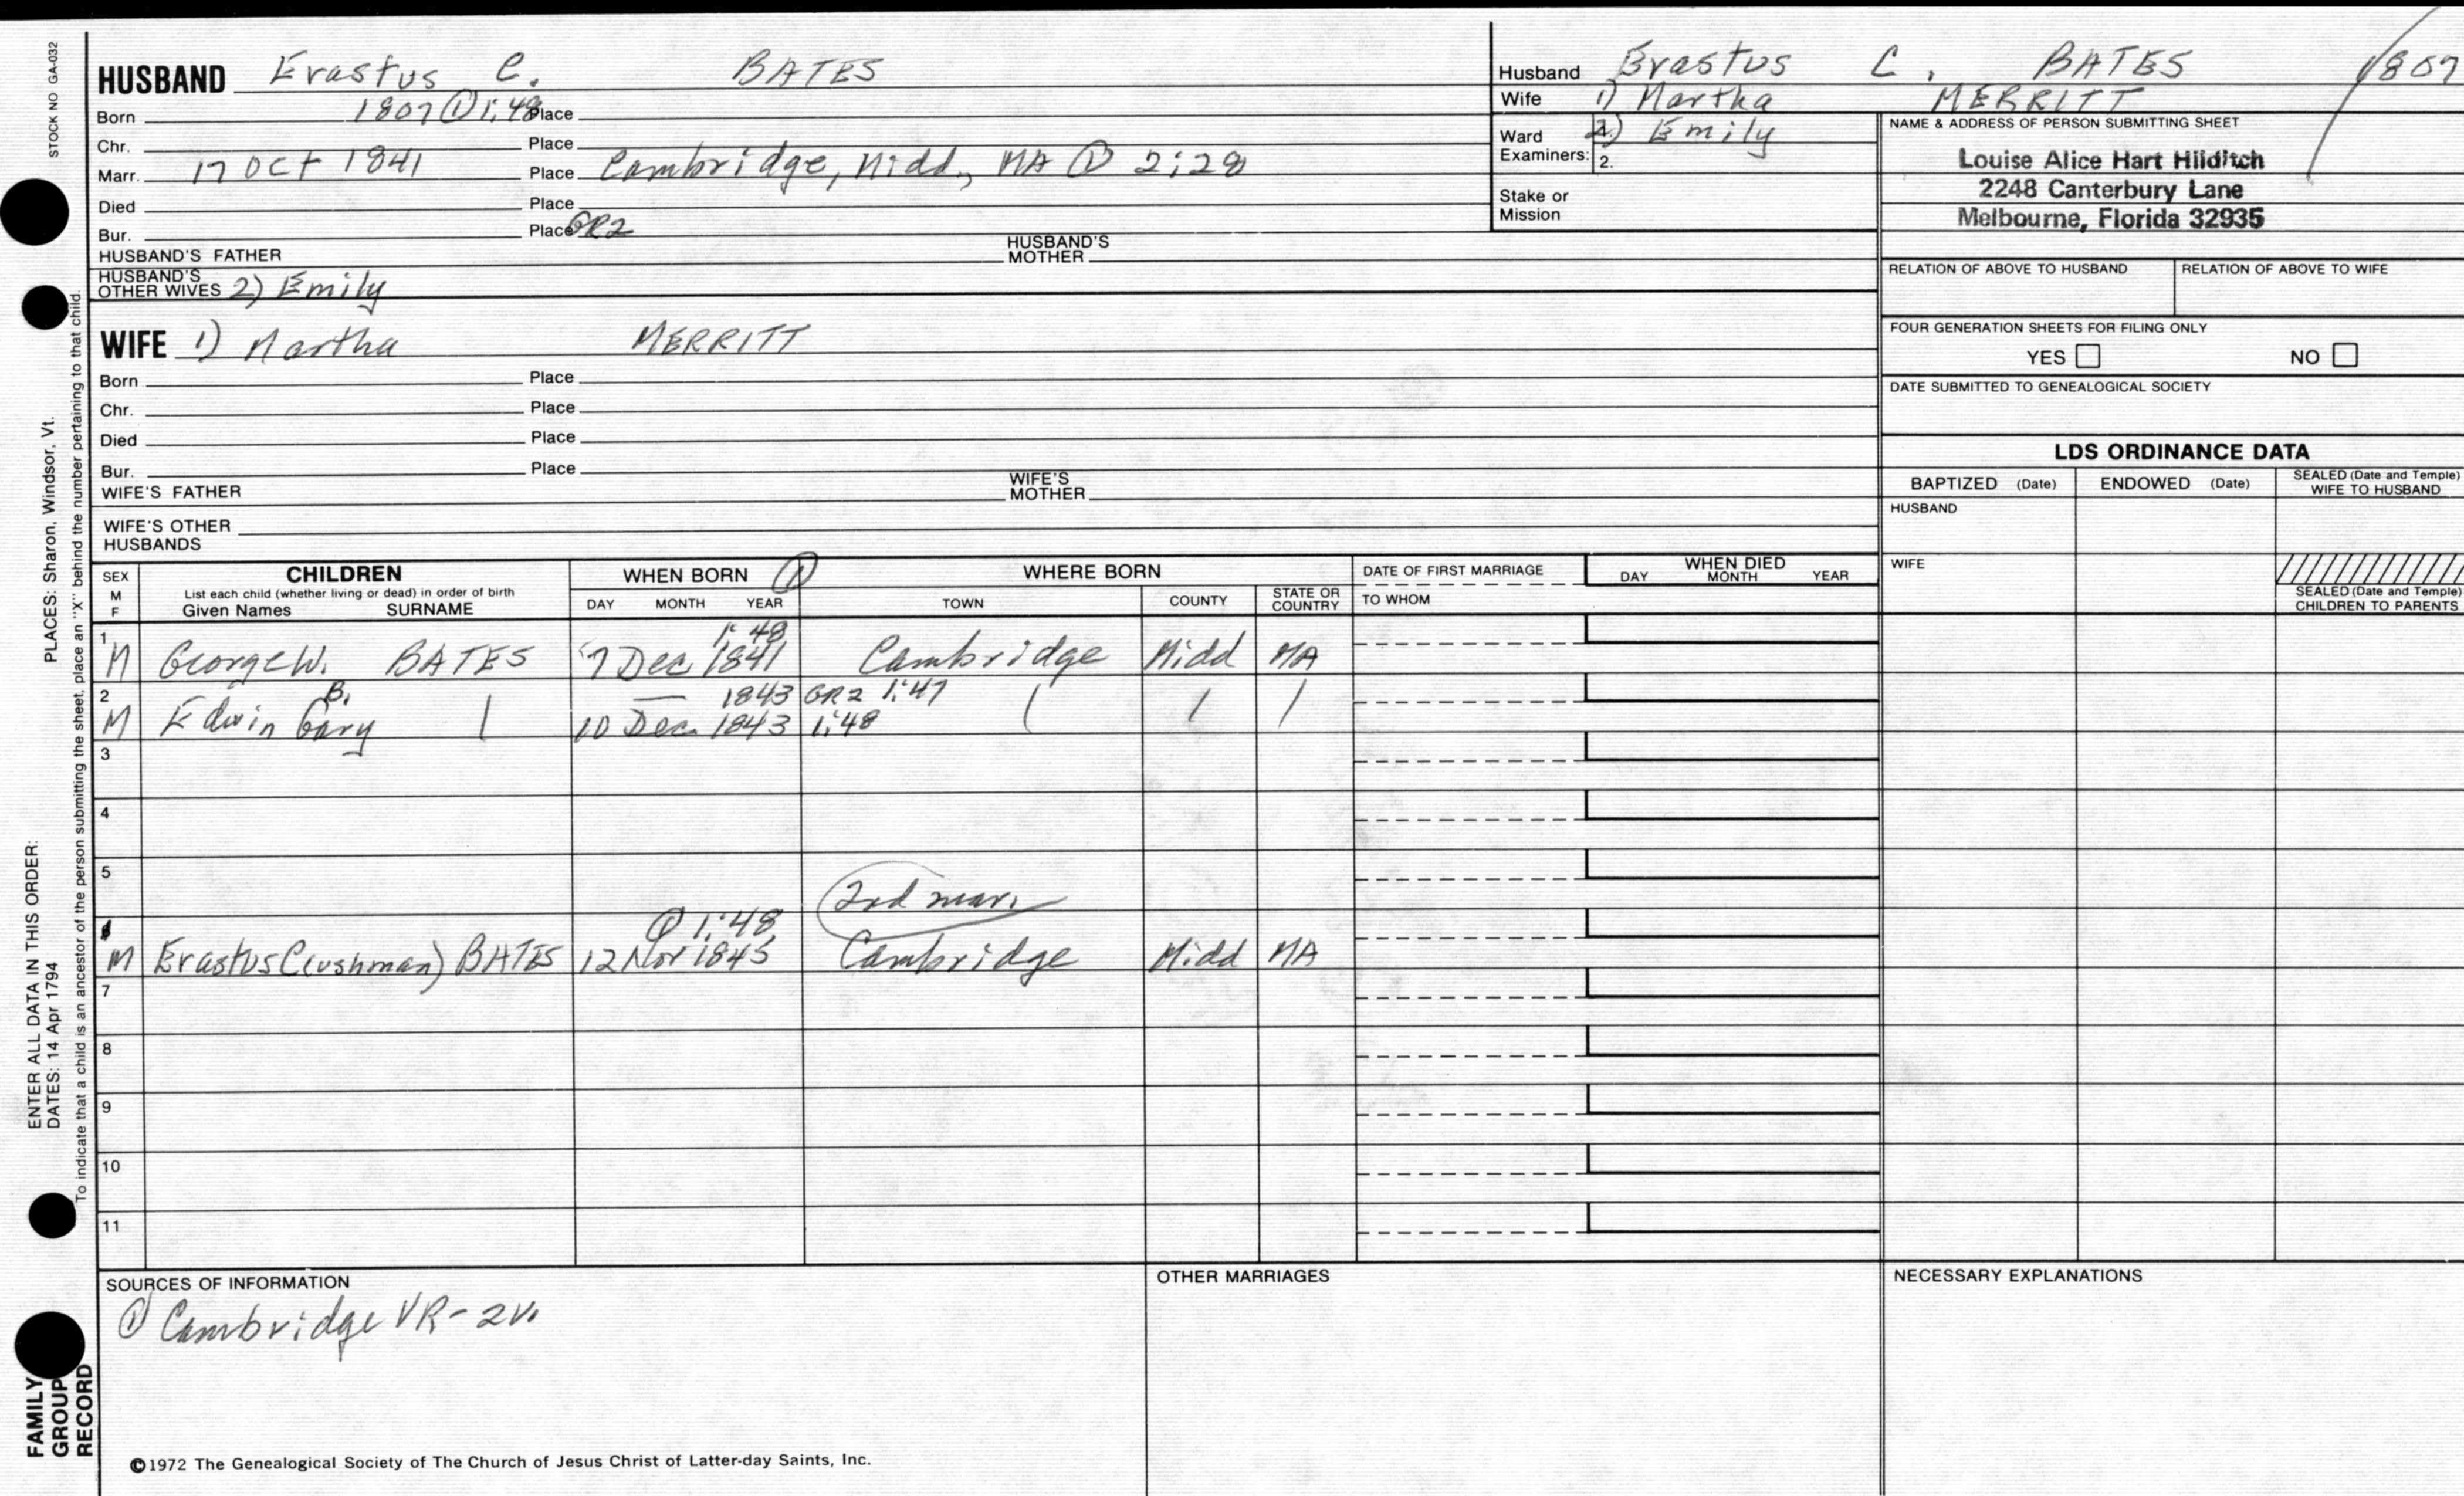 STOCK NO GA-032
HUSBAND Erastus C. BATES
Born 1807 ① 1:48 Place
Chr. Place
Marr. 17 Oct 1841 Place Cambridge, Midd, MA ① 2:28
Died Place
Bur. Place GR2
HUSBAND'S FATHER HUSBAND'S MOTHER
HUSBAND'S OTHER WIVES 2) Emily
WIFE 1) Martha MERRITT
Born Place
Chr. Place
Died Place
Bur. Place
WIFE'S FATHER WIFE'S MOTHER
WIFE'S OTHER HUSBANDS
Husband Erastus C. BATES 1807
Wife 1) Martha MERRITT
Ward 2) Emily
Examiners: 2.
Stake or Mission
NAME & ADDRESS OF PERSON SUBMITTING SHEET
Louise Alice Hart Hilditch
2248 Canterbury Lane
Melbourne, Florida 32935
RELATION OF ABOVE TO HUSBAND RELATION OF ABOVE TO WIFE
FOUR GENERATION SHEETS FOR FILING ONLY
YES NO
DATE SUBMITTED TO GENEALOGICAL SOCIETY
LDS ORDINANCE DATA
BAPTIZED (Date) ENDOWED (Date) SEALED (Date and Temple) WIFE TO HUSBAND
HUSBAND
WIFE
SEALED (Date and Temple) CHILDREN TO PARENTS
SEX M F CHILDREN WHEN BORN ① WHERE BORN DATE OF FIRST MARRIAGE WHEN DIED
List each child (whether living or dead) in order of birth
Given Names SURNAME DAY MONTH YEAR TOWN COUNTY STATE OR COUNTRY TO WHOM DAY MONTH YEAR
1 1:48
M George W. BATES 7 Dec 1841 Cambridge Midd MA
2 B. — 1843 GR2 1:47
M Edwin Gary 10 Dec. 1843 1:48
3
4
5
2nd mar.
① 1:48
M Erastus C(ushman) BATES 12 Nov 1845 Cambridge Midd MA
7
8
9
10
11
SOURCES OF INFORMATION
① Cambridge VR-2v.
OTHER MARRIAGES
NECESSARY EXPLANATIONS
©1972 The Genealogical Society of The Church of Jesus Christ of Latter-day Saints, Inc.
FAMILY GROUP RECORD
ENTER ALL DATA IN THIS ORDER:
DATES: 14 Apr 1794 PLACES: Sharon, Windsor, Vt.
To indicate that a child is an ancestor of the person submitting the sheet, place an "X" behind the number pertaining to that child.